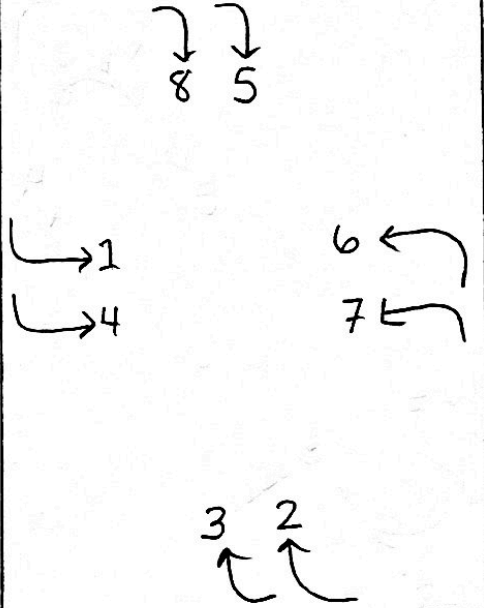 8 5
1
6
4
7
3 2